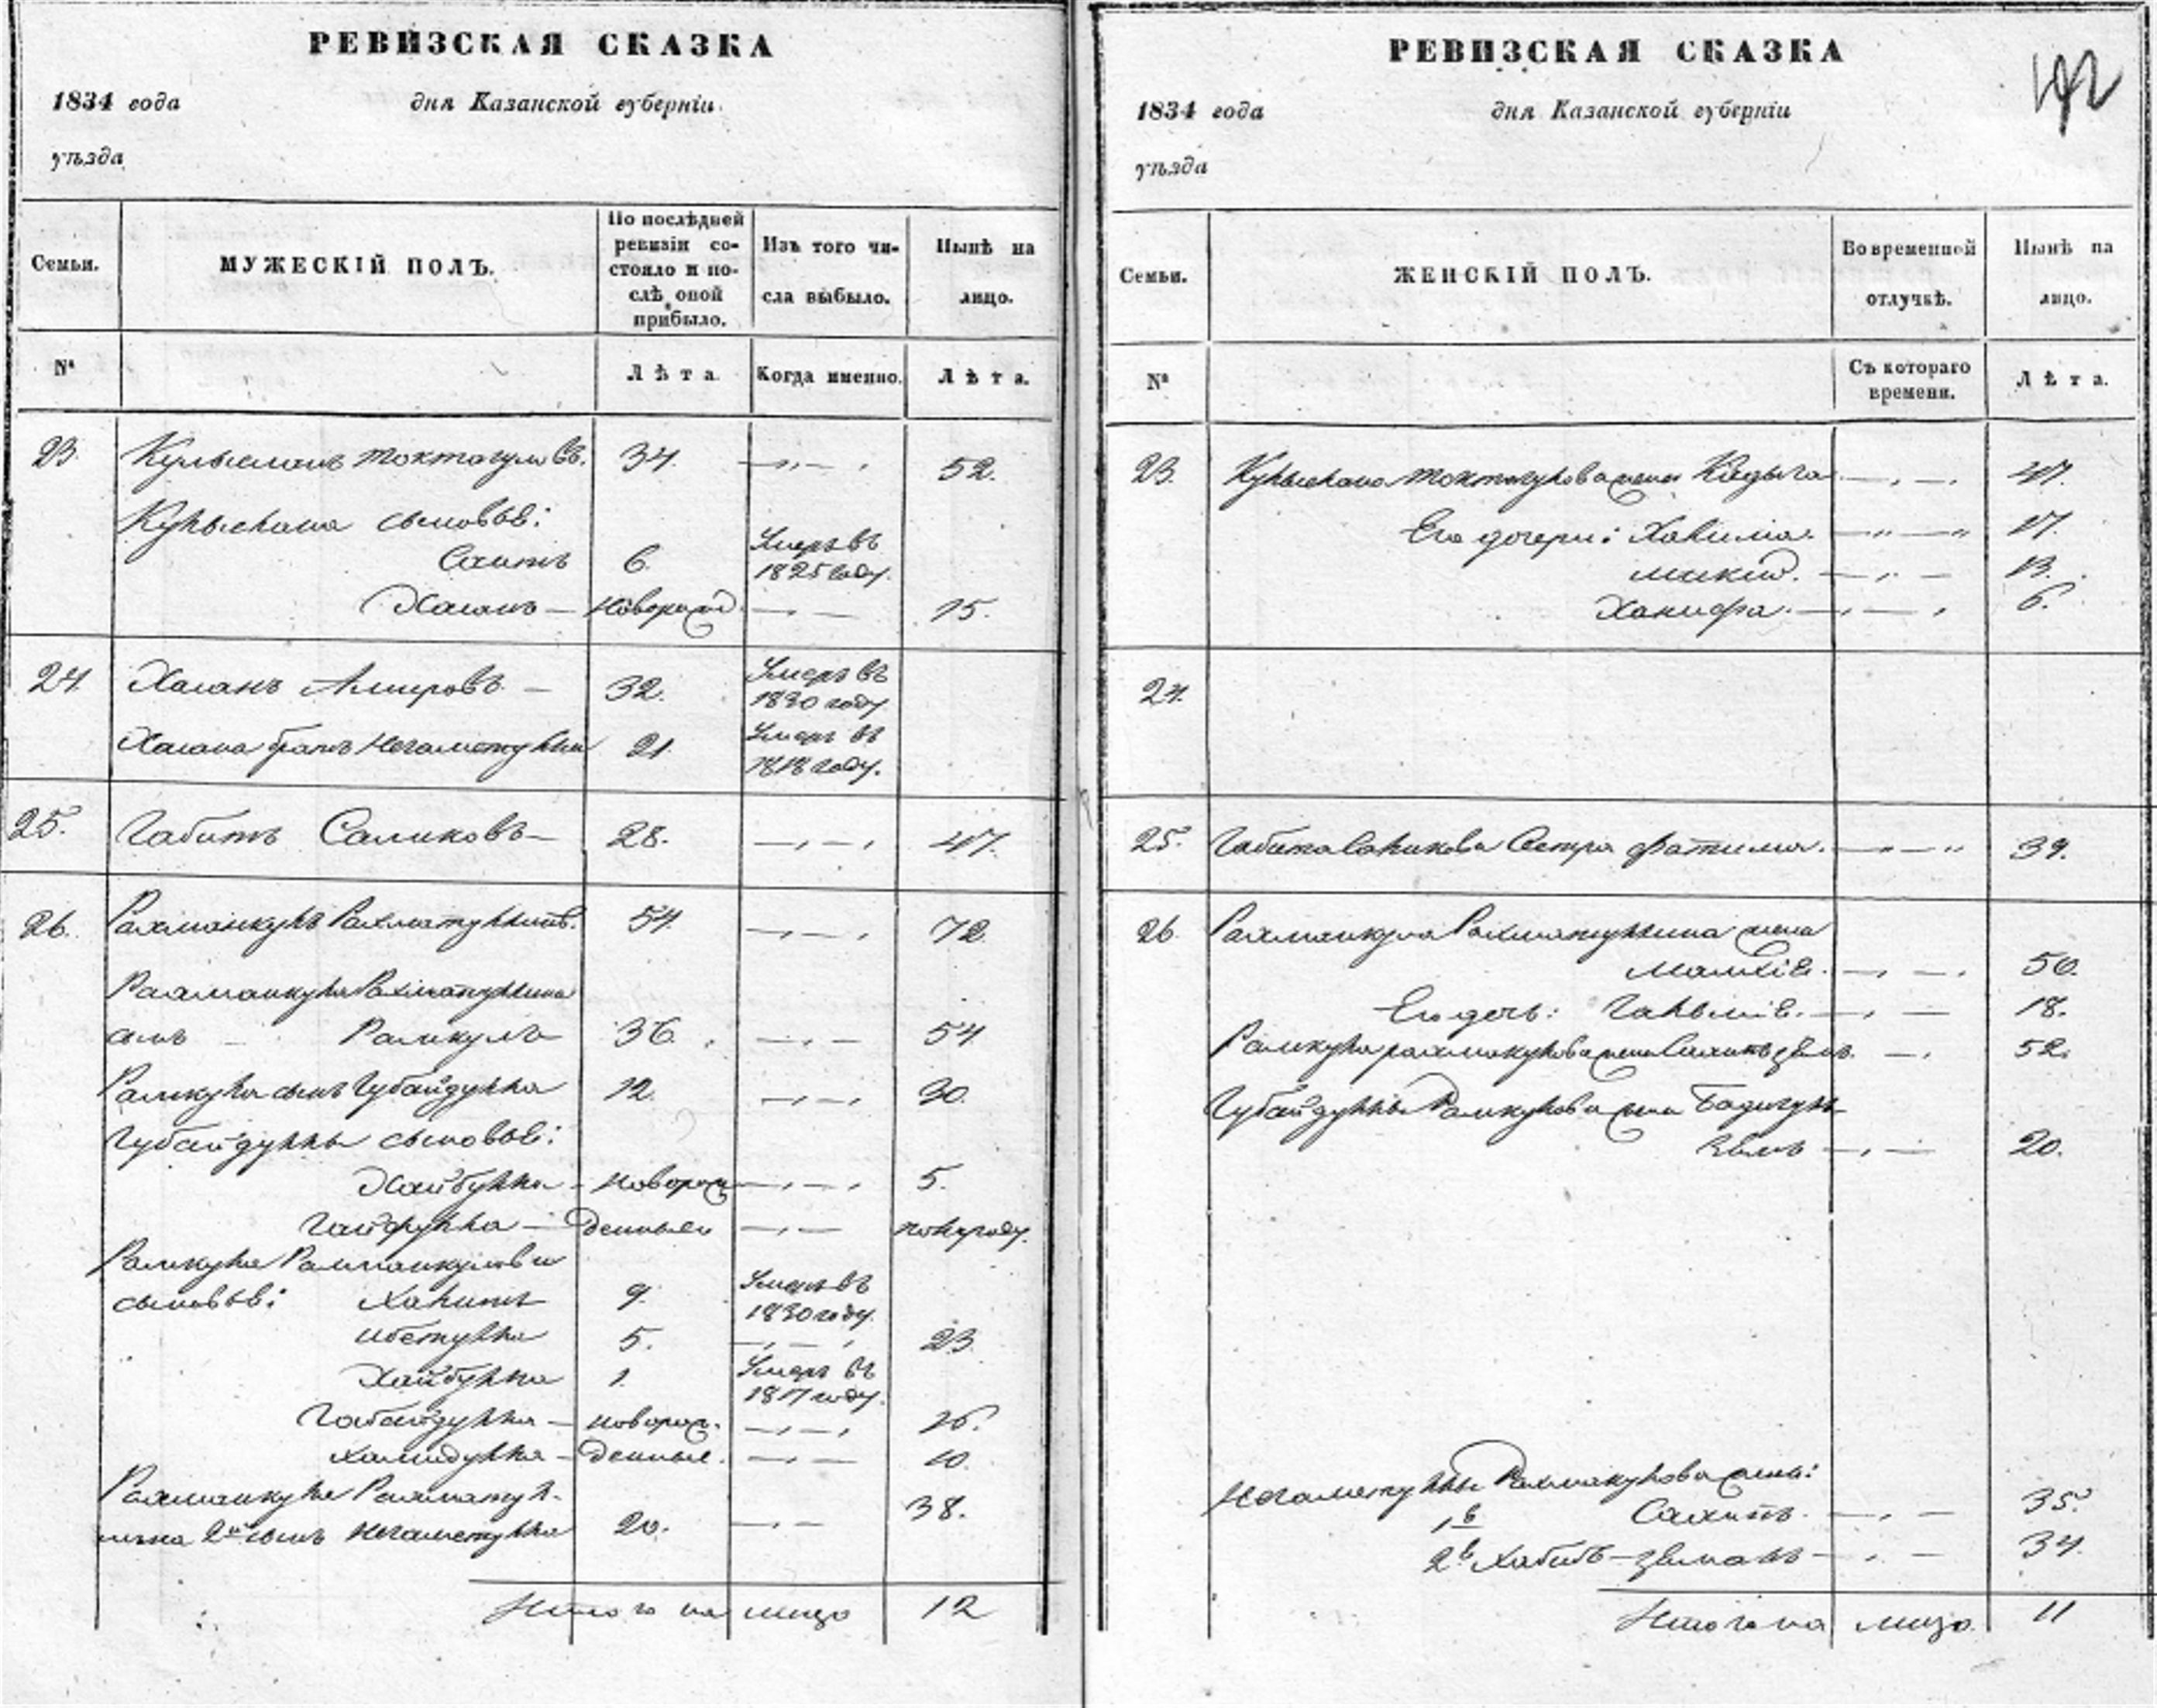 РЕВИЗСКАЯ СКАЗКА
1834 года дня Казанской губерніи
уѣзда
Семьи. МУЖЕСКІЙ ПОЛЪ. По послѣдней ревизіи состояло и послѣ оной прибыло. Изъ того числа выбыло. Нынѣ на лицо.
№ Лѣта. Когда именно. Лѣта.
23. Кулысланъ Токтагуловъ. 34. 52.
Кулыслана сыновья:
Саитъ 6. Умеръ въ 1825 году.
Хасанъ — новорожд. 15.
24. Хасанъ Амировъ — 32. Умеръ въ 1830 году.
Хасана братъ Негаметулла 21. Умеръ въ 1818 году.
25. Габитъ Саликовъ — 28. 47.
26. Рахманкулъ Рахматуллинъ. 54. 72.
Рахманкула Рахматуллина
сынъ Рамкулъ 36. 54
Рамкула сынъ Губайдулла 12. 30.
Губайдуллы сыновья:
Хайбулла — новорож 5.
Гайфулла — денныя полугоду.
Рамкула Рахманкулова
сыновья: Халитъ 9. Умеръ въ 1830 году.
Ибетулла 5. 23
Хайбулла 1. Умеръ въ 1817 году.
Габайдулла — новорож. 16.
Хамидулла — денные. 10.
Рахманкула Рахматул-
лина 2й сынъ Негаметулла 20. 38.
Итого на лицо 12
РЕВИЗСКАЯ СКАЗКА
1834 года дня Казанской губерніи
уѣзда
Семьи. ЖЕНСКІЙ ПОЛЪ. Во временной отлучкѣ. Нынѣ на лицо.
№ Съ котораго времени. Лѣта.
23. Кулыслана Токтагулова жена 47.
Его дочери: Халима. 17.
13.
Ханифа. 6.
24.
25. Габита Саликова сестра Фатима. 39.
26. Рахманкула Рахматуллина жена
50.
Его дочь: 18.
Рамкула Рахманкулова жена 52.
Губайдуллы Рамкулова жена
20.
Негаметуллы Рахманкулова жены:
1я 35.
2я 34.
Итого на лицо. 11